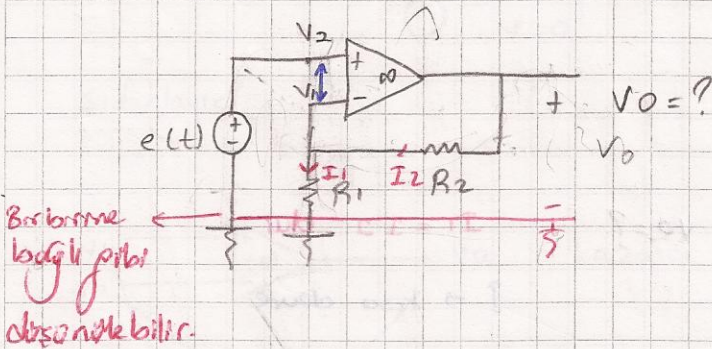 V2
+
∞
V1
-
+ VO = ?
e(t)
+
-
Vo
I1 R1 I2 R2
-
Birbirine
bağlı gibi
düşünülebilir.